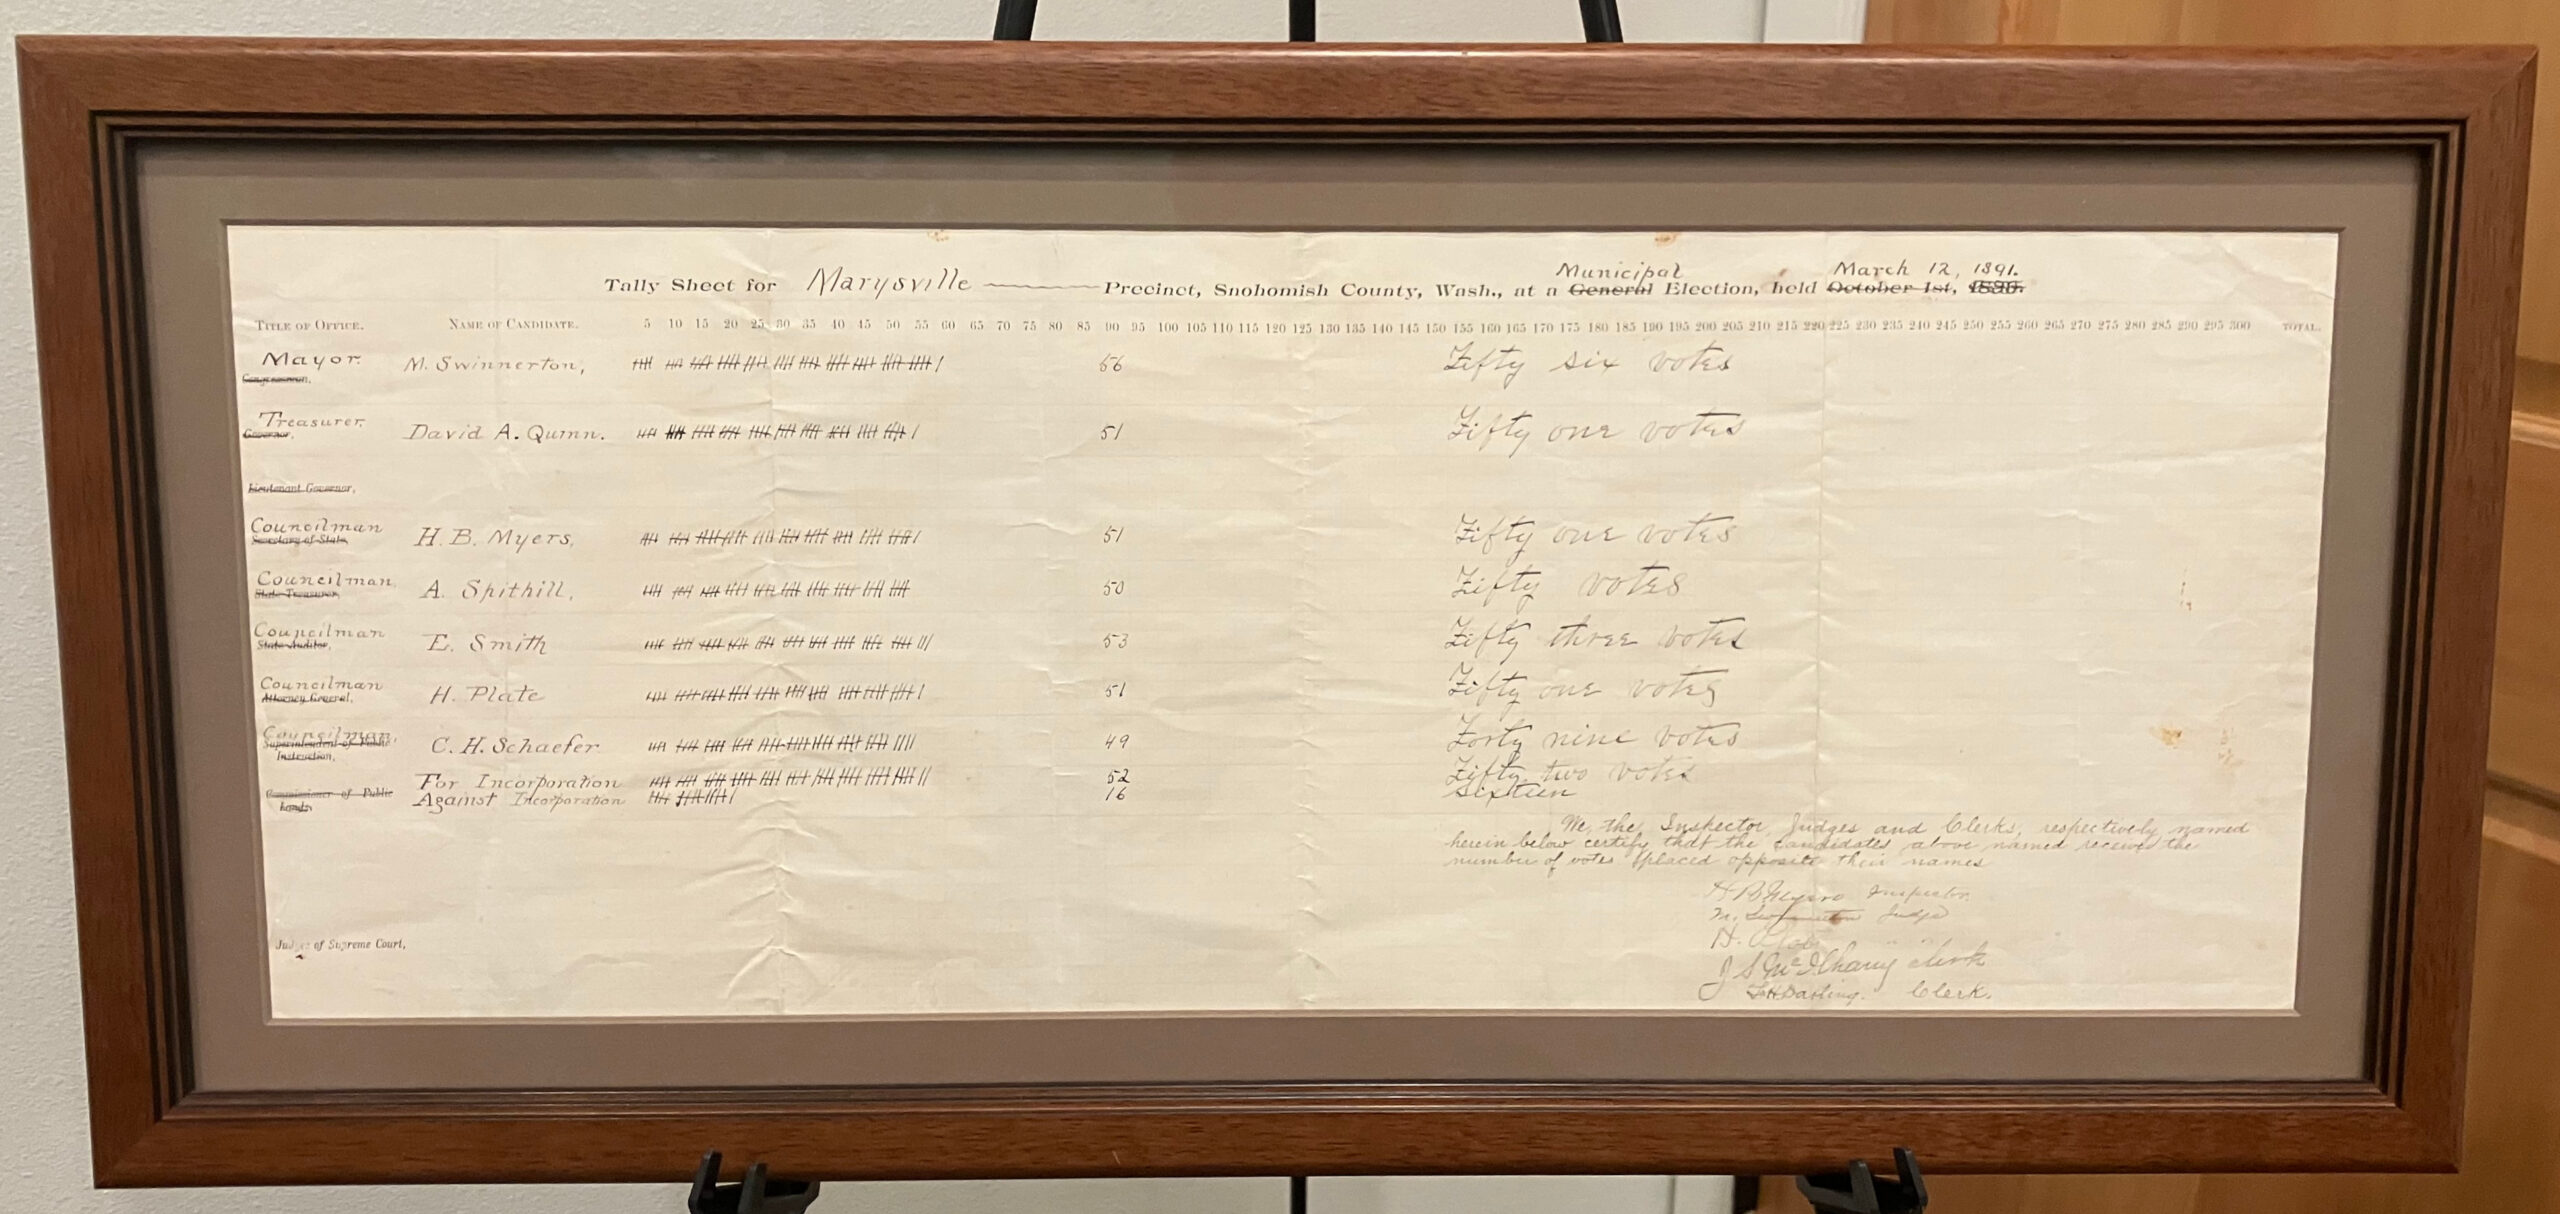 Municipal March 12, 1891.
Tally Sheet for Marysville Precinct, Snohomish County, Wash., at a General Election, held October 1st,
TITLE OF OFFICE. NAME OF CANDIDATE. 5 10 15 20 25 30 35 40 45 50 55 60 65 70 75 80 85 90 95 100 105 110 115 120 125 130 135 140 145 150 155 160 165 170 175 180 185 190 195 200 205 210 215 220 225 230 235 240 245 250 255 260 265 270 275 280 285 290 295 300 TOTAL.
Mayor. M. Swinnerton, 56 Fifty six votes
Congressman,
Treasurer, David A. Quinn. 51 Fifty one votes
Governor,
Lieutenant Governor,
Councilman H. B. Myers, 51 Fifty one votes
Secretary of State,
Councilman, A. Spithill, 50 Fifty votes
State Treasurer,
Councilman E. Smith 53 Fifty three votes
State Auditor,
Councilman H. Plate 51 Fifty one votes
Attorney General,
Councilman, C. H. Schaefer 49 Forty nine votes
Superintendent of Public
Instruction,
For Incorporation 52 Fifty two votes
Commissioner of Public Against Incorporation 16 Sixteen
Lands,
We, the Inspector, Judges and Clerks, respectively named
herein below certify that the candidates above named received the
number of votes placed opposite their names
H B Myers Inspector.
M. Swinnerton Judge
H.
J S McIlhany Clerk
Darling. Clerk.
Judges of Supreme Court,